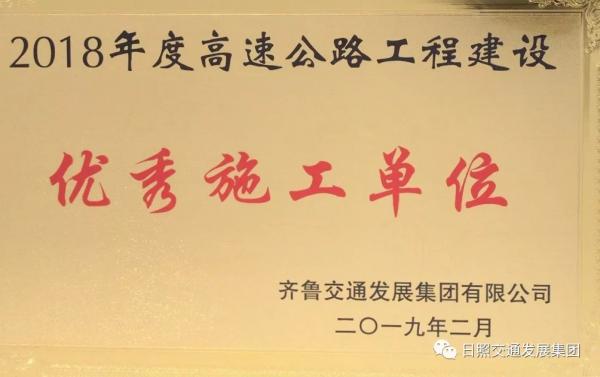 2018年度高速公路工程建设
优秀施工单位
齐鲁交通发展集团有限公司
二〇一九年二月
日照交通发展集团